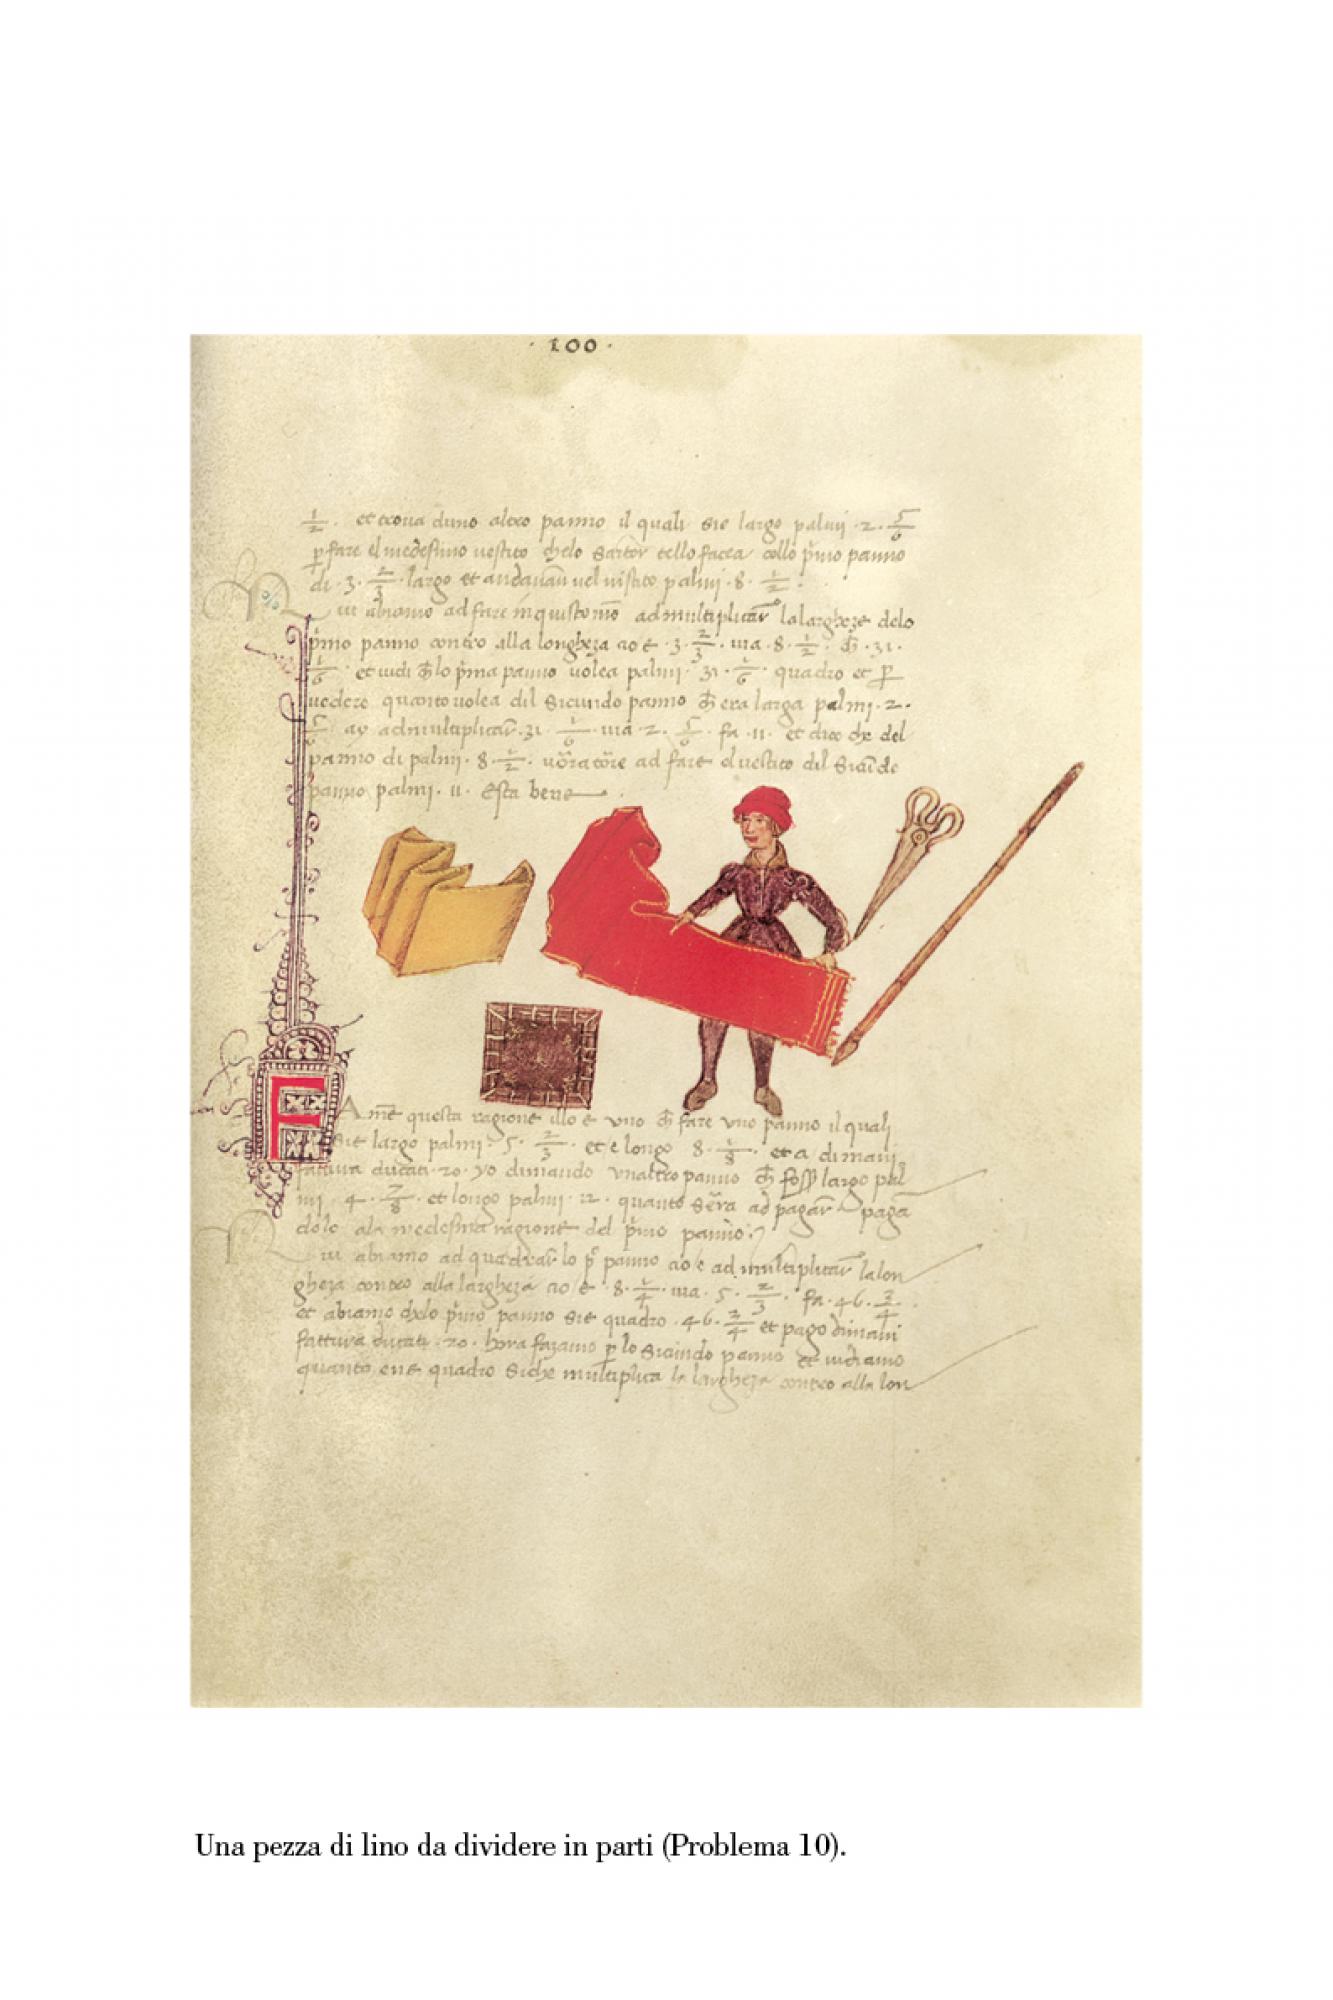 · 100 ·
1/2 . et trova duno altro panno il quali sie largo palmi · 2 · 5/6
p fare el medesimo vestito chelo sartor tello facea collo pmo panno
di · 3 · 2/3 · largo et andavan nel vistito palmi · 8 · 1/2 ·
abiamo ad fare in quisto mo ad multiplicar la larghezе delo
pmo panno contro alla longheza cio e · 3 · 2/3 · via · 8 · 1/2 · 31 ·
1/6 · et vidi lo pmo panno volea palmi · 31 · 1/6 · quadro et p
vedere quanto volea dil sicundo panno era larga palmi · 2 ·
5/6 · ay ad multiplicar · 31 · 1/6 · via · 2 · 5/6 · fa · 11 · et dico che del
panno di palmi · 8 · 1/2 · ad fare el vestito dil
panno palmi · 11 · Esta bene
FAme questa ragione illo e uno fare uno panno il quali
sie largo palmi · 5 · 2/3 · et e longo 8 · et a di mani
fattura ducati · 20 · yo dimando unaltro panno largo pal
mi · 4 · 7/8 · et longo palmi · 12 · quanto sera ad pagar paga
dolo ala medesma ragione del pmo panno
abiamo ad quadrar lo panno cio e ad multiplicar la lon
gheza contro alla largheza cio e · 8 · 1/4 · via · 5 · 2/3 · fa · 46 · 3/4 ·
et abiamo chelo pmo panno sie quadro · 46 · 3/4 et pago dimani
fattura ducati · 20 · hora fazamo p lo sicundo panno et vidiamo
quanto ene quadro siche multiplica la largheza contro alla lon
Una pezza di lino da dividere in parti (Problema 10).